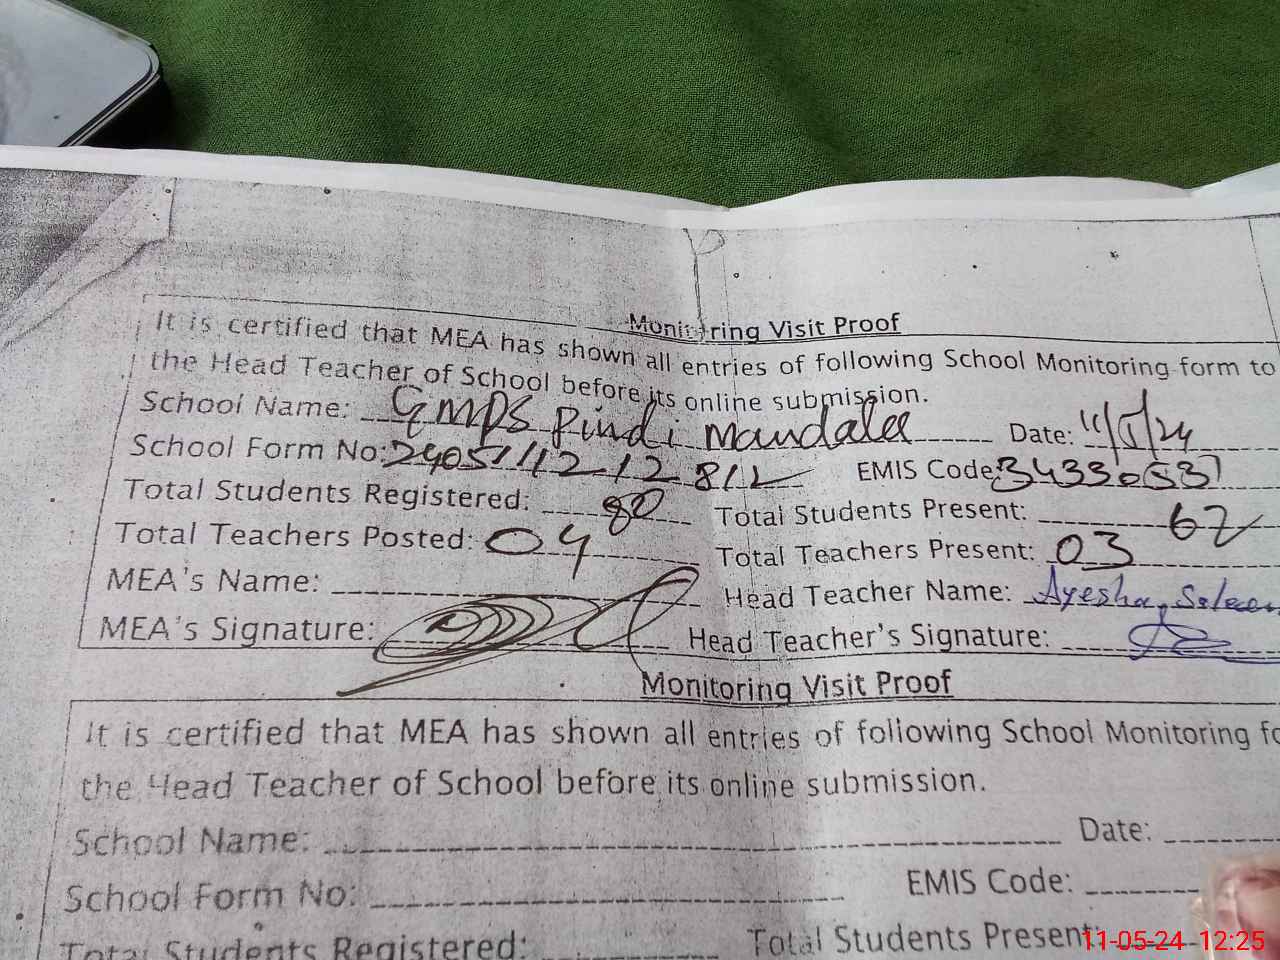 Monitoring Visit Proof
It is certified that MEA has shown all entries of following School Monitoring form to
the Head Teacher of School before its online submission.
School Name: GMPS Pindi Mandalea Date: 11/5/24
School Form No: EMIS Code: 34330537
Total Students Registered: 80 Total Students Present: 62
Total Teachers Posted: 04 Total Teachers Present: 03
MEA's Name: Head Teacher Name: Ayesha Saleem
MEA's Signature: Head Teacher's Signature:
Monitoring Visit Proof
It is certified that MEA has shown all entries of following School Monitoring fo
the Head Teacher of School before its online submission.
School Name: Date:
School Form No: EMIS Code:
Total Students Registered: Total Students Present:
11-05-24 12:25